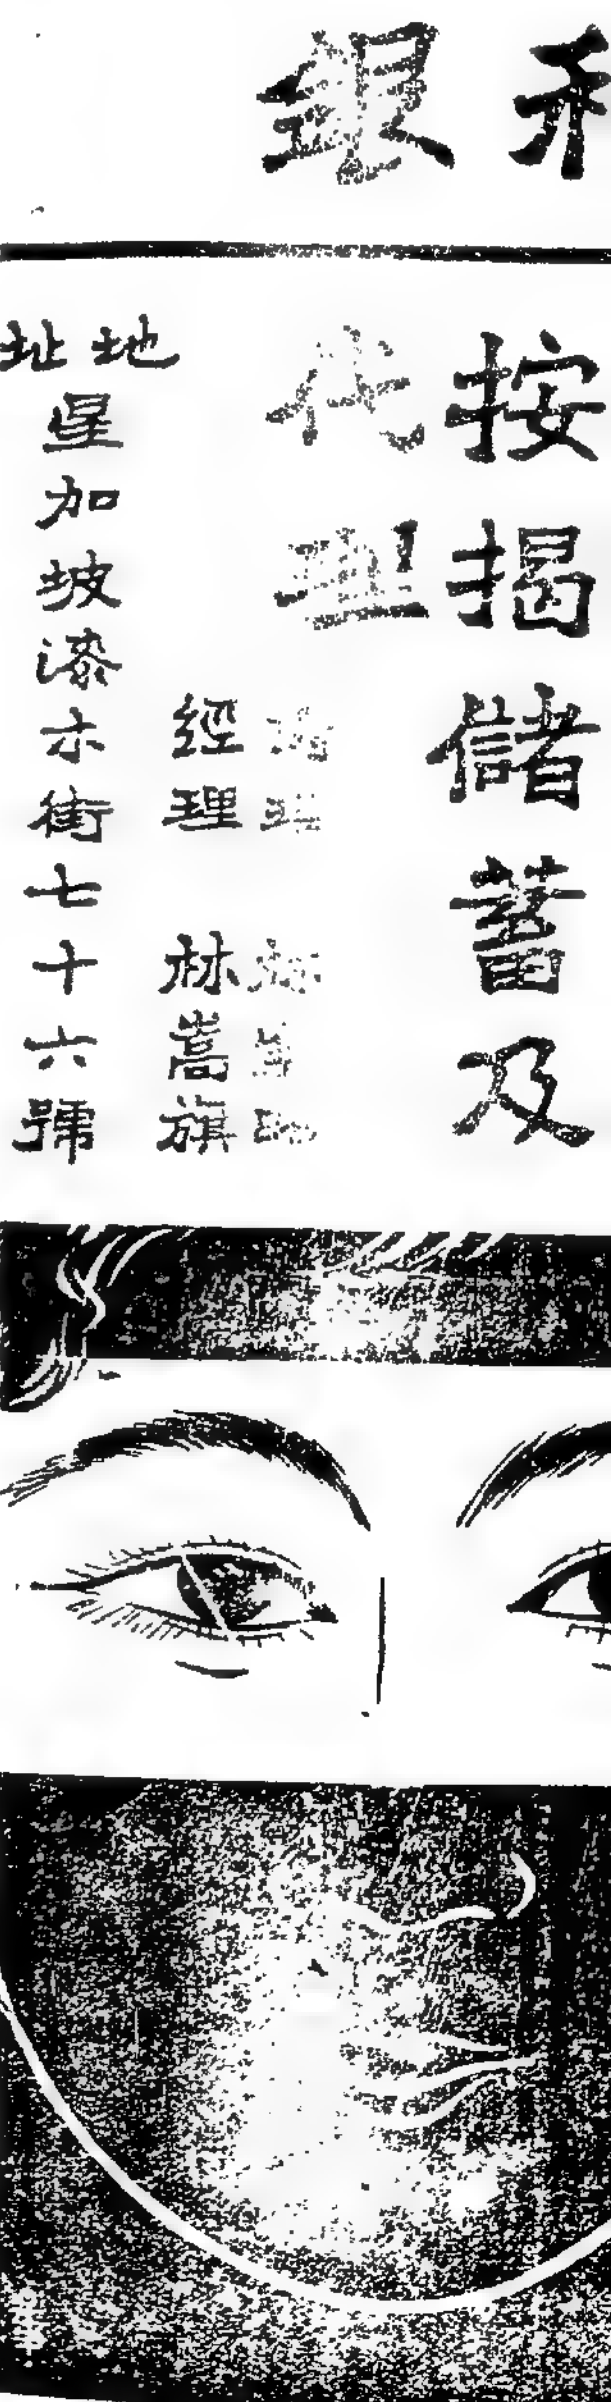 銀
按揭儲蓄及
代理
經理 林嵩旗
地址
星加坡漆木街七十六號